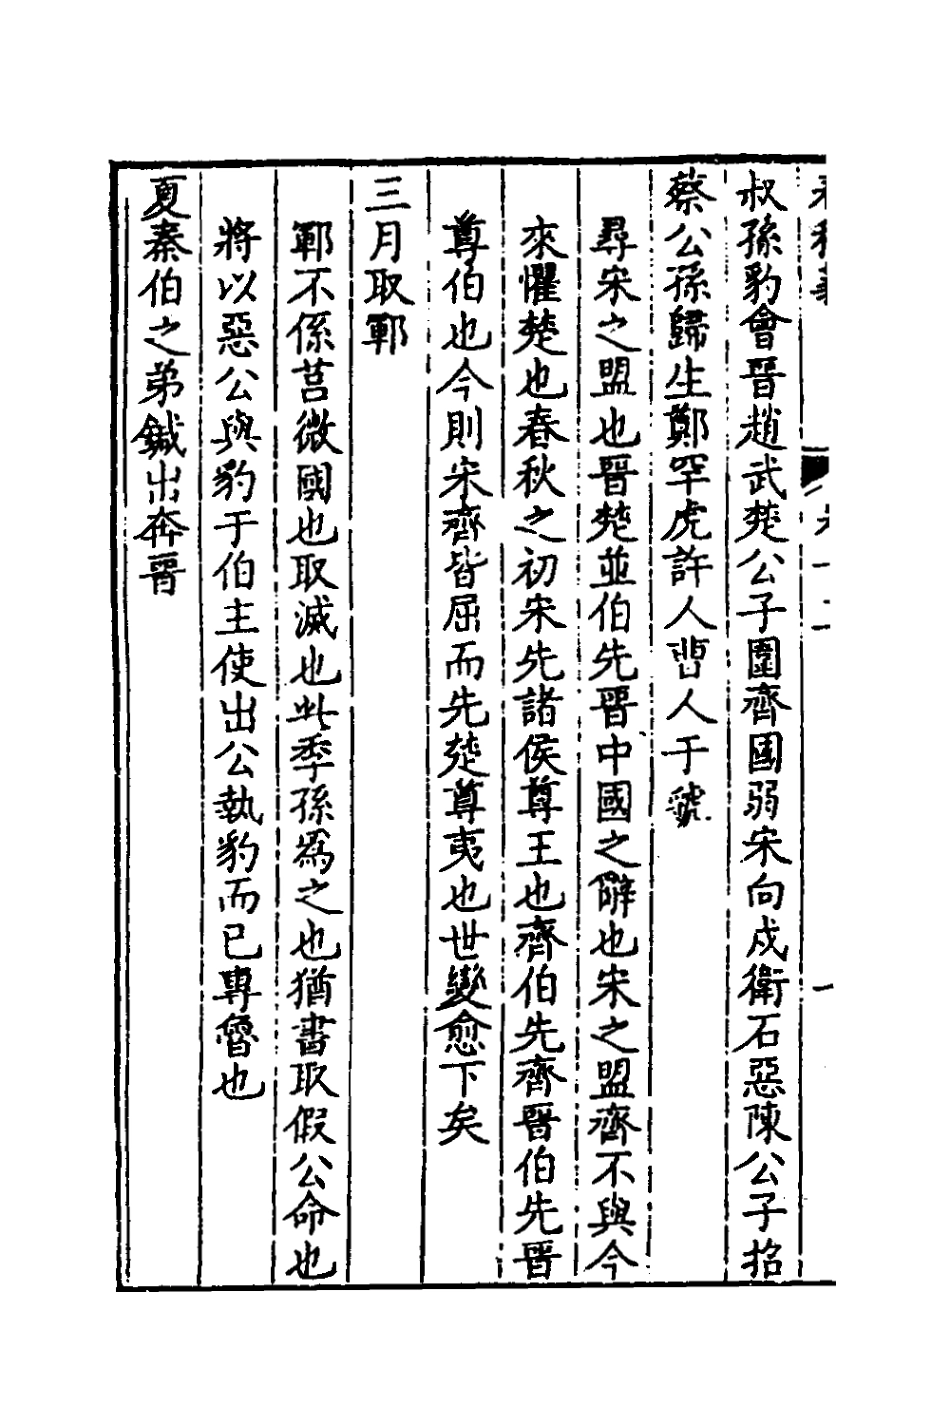 叔孫豹會晉趙武楚公子圍齊國弱宋向戍衛石惡陳公子招
蔡公孫歸生鄭罕虎許人曹人于虢
尋宋之盟也晉楚並伯先晉中國之辭也宋之盟齊不與今
來懼楚也春秋之初宋先諸侯尊王也齊伯先齊晉伯先晉
尊伯也今則宋齊皆屈而先楚尊夷也世變愈下矣
三月取鄆
鄆不係莒微國也取滅也此季孫為之也猶書取假公命也
將以惡公與豹于伯主使出公執豹而已專魯也
夏秦伯之弟鍼出奔晉